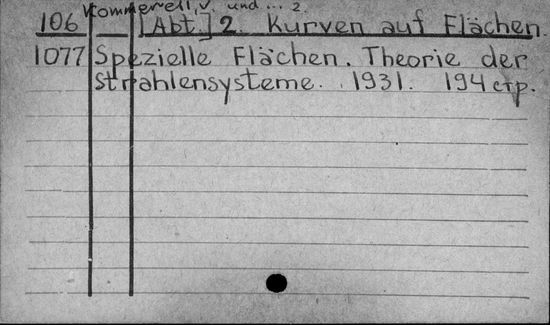 Kommerell, V. und... 2.
106 [Abt.] 2. Kurven auf Flächen.
1077 Spezielle Flächen. Theorie der
Strahlensysteme. 1931. 194 стр.